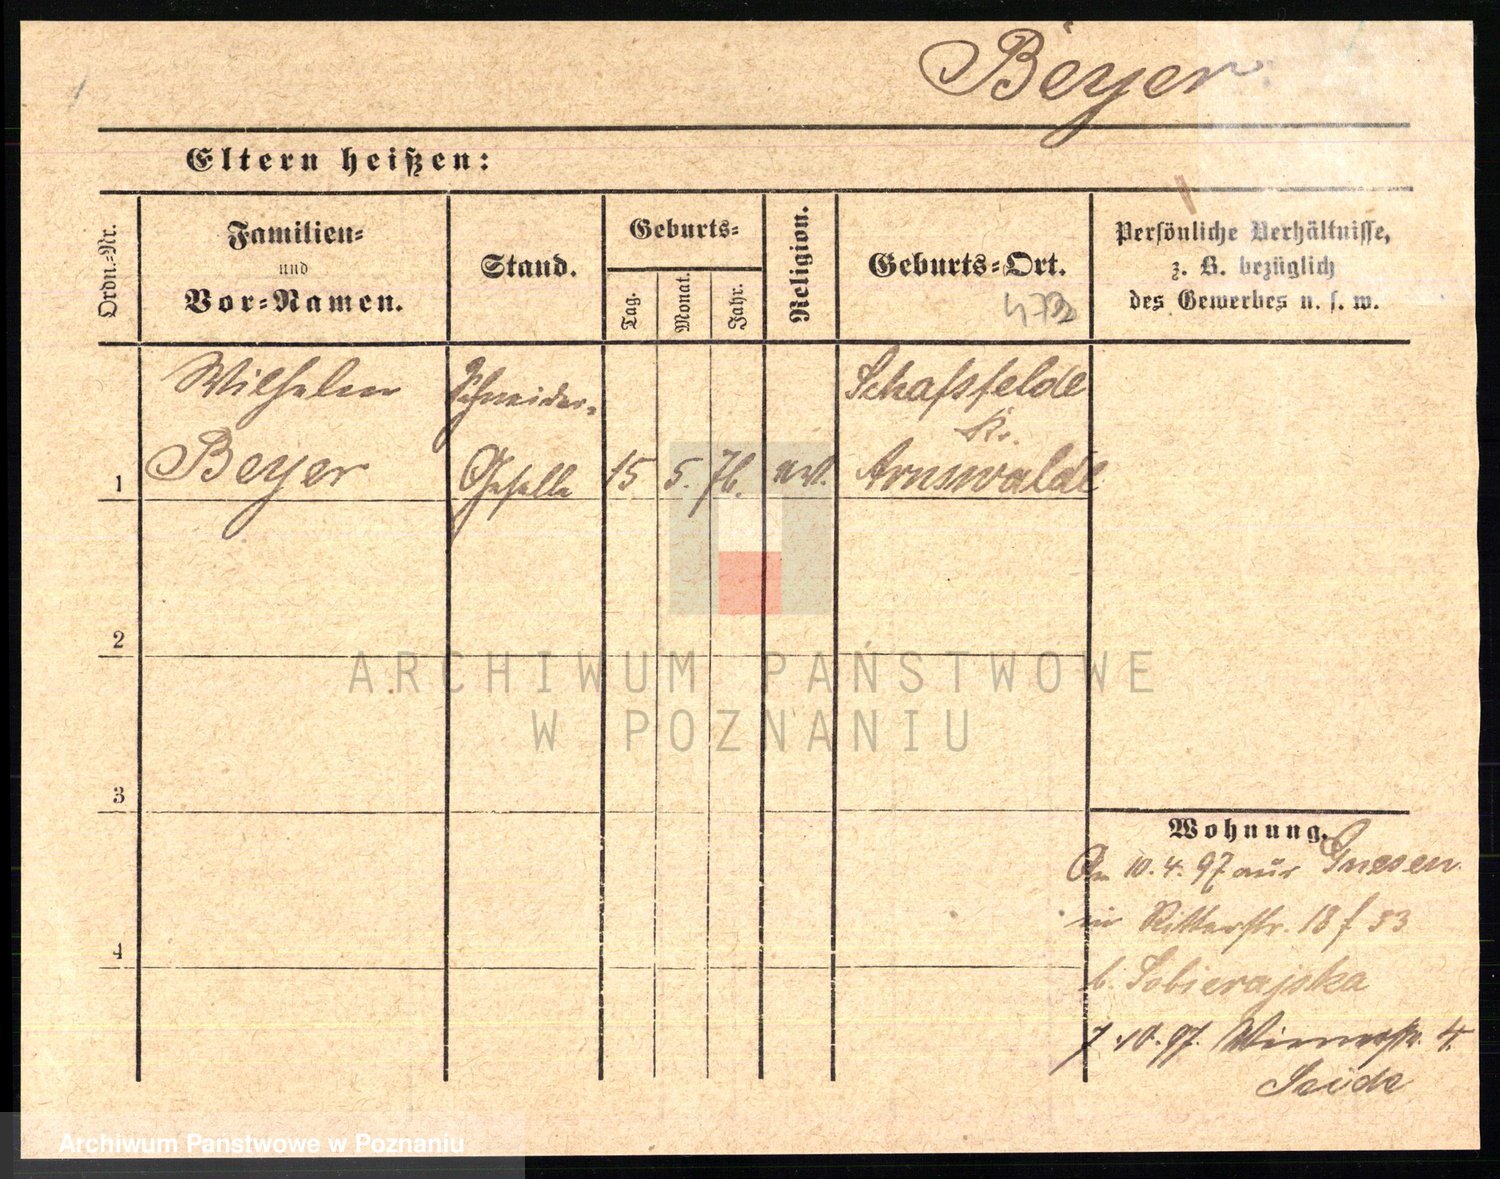 Beyer
Eltern heißen:
Ordn.-Nr.
Familien-
und
Vor-Namen.
Stand.
Geburts-
Tag.
Monat.
Jahr.
Religion.
Geburts-Ort.
Persönliche Verhältnisse,
z. B. bezüglich
des Gewerbes u. s. w.
Wilhelm Schneider- Schafsfelde
Kr.
1 Beyer Geselle 15 5. 76. Arnswalde
2
ARCHIWUM PAŃSTWOWE
W POZNANIU
3
Wohnung.
Am 10.4.97 aus Gnesen
in Ritterstr. 18
b. Sobierajska
7.10.97. Wienerstr. 4.
4
Archiwum Państwowe w Poznaniu